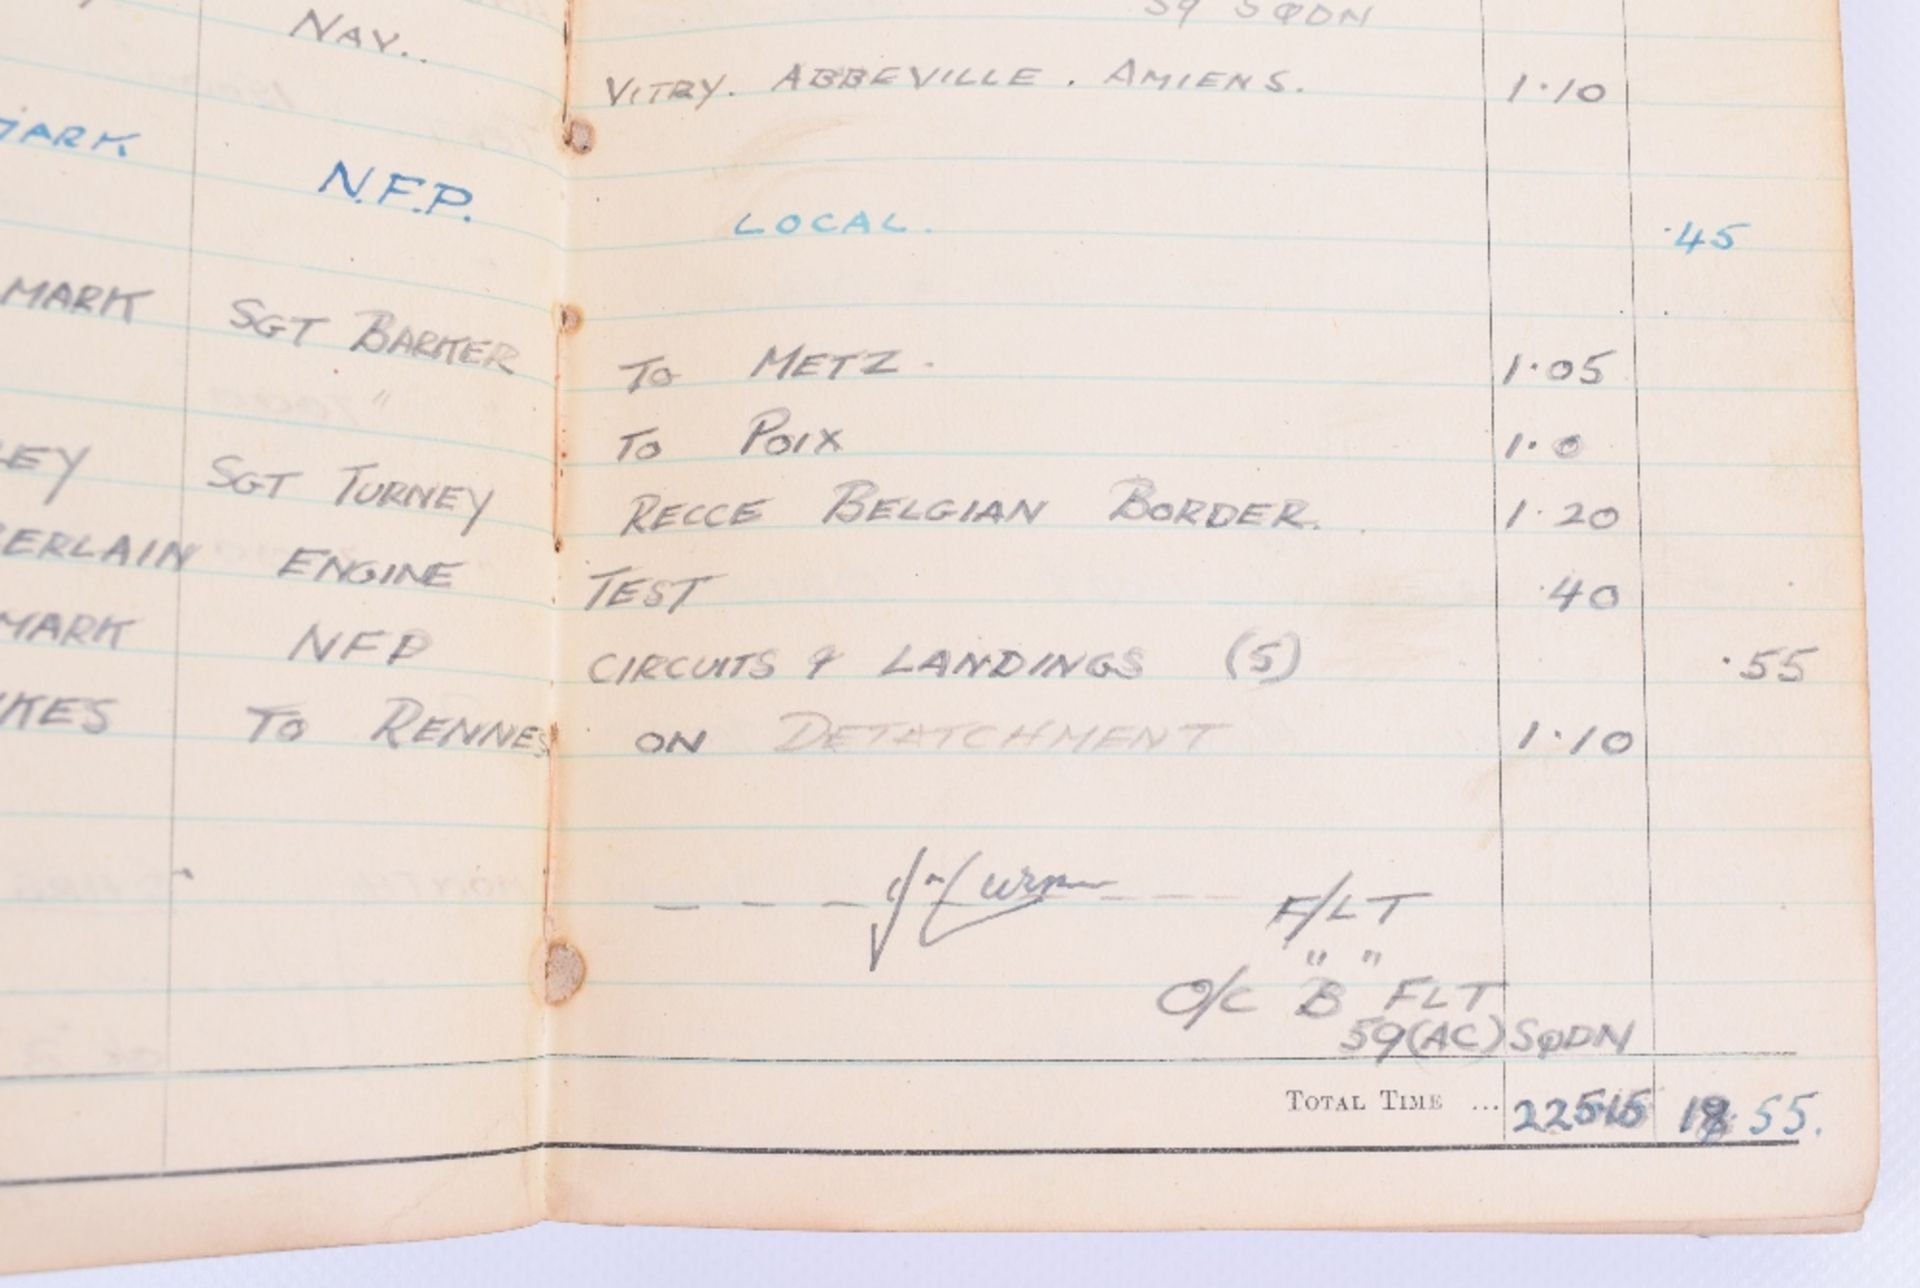 59 SQDN
NAV.. VITRY. ABBEVILLE. AMIENS. 1·10
MARK. N.F.P. LOCAL. ·45
MARK SGT BARKER TO METZ. 1·05
TO POIX 1·0
LEY SGT TURNEY RECCE BELGIAN BORDER. 1·20
BERLAIN ENGINE TEST ·40
MARK NFP CIRCUITS & LANDINGS (5) ·55
KES TO RENNES ON DETATCHMENT 1·10
F/LT
O/C "B" FLT
59(AC) SQDN
TOTAL TIME ... 22515 55.